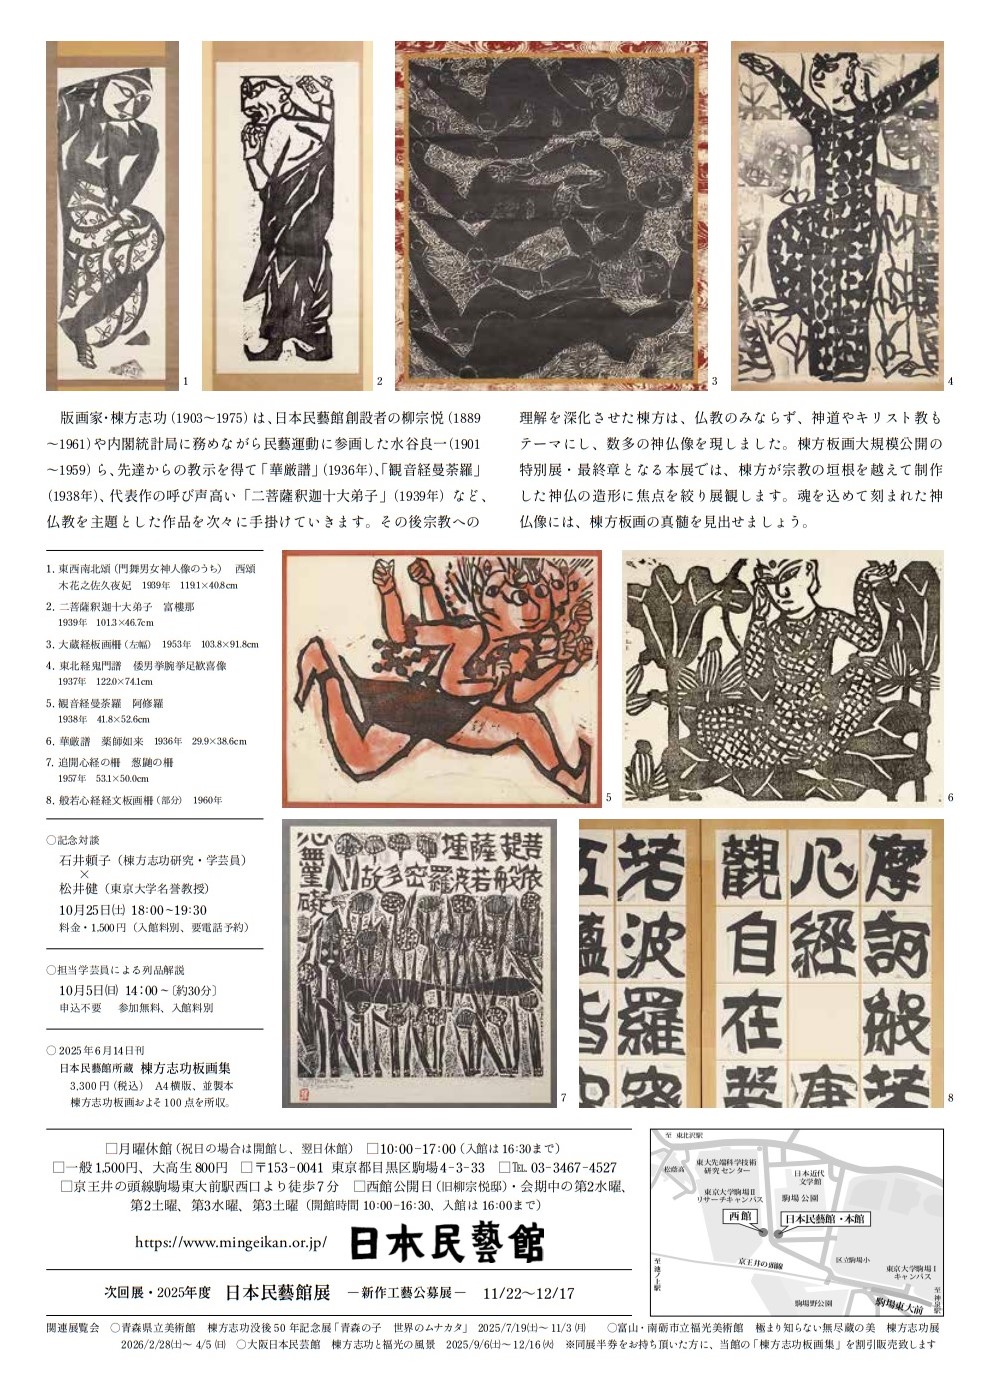 1
2
3
4
版画家・棟方志功(1903〜1975)は、日本民藝館創設者の柳宗悦(1889
〜1961)や内閣統計局に務めながら民藝運動に参画した水谷良一(1901
〜1959)ら、先達からの教示を得て「華厳譜」(1936年)、「観音経曼荼羅」
(1938年)、代表作の呼び声高い「二菩薩釈迦十大弟子」(1939年)など、
仏教を主題とした作品を次々に手掛けていきます。その後宗教への
理解を深化させた棟方は、仏教のみならず、神道やキリスト教も
テーマにし、数多の神仏像を現しました。棟方板画大規模公開の
特別展・最終章となる本展では、棟方が宗教の垣根を越えて制作
した神仏の造形に焦点を絞り展観します。魂を込めて刻まれた神
仏像には、棟方板画の真髄を見出せましょう。
1. 東西南北頌(門舞男女神人像のうち) 西頌
木花之佐久夜妃 1939年 119.1×40.8cm
2. 二菩薩釈迦十大弟子 富樓那
1939年 101.3×46.7cm
3. 大蔵経板画柵(左幅) 1953年 103.8×91.8cm
4. 東北経鬼門譜 倭男挙腕挙足歓喜像
1937年 122.0×74.1cm
5. 観音経曼荼羅 阿修羅
1938年 41.8×52.6cm
6. 華厳譜 薬師如来 1936年 29.9×38.6cm
7. 追開心経の柵 葱韮の柵
1957年 53.1×50.0cm
8. 般若心経経文板画柵(部分) 1960年
5
6
○記念対談
石井頼子(棟方志功研究・学芸員)
×
松井健(東京大学名誉教授)
10月25日(土) 18:00~19:30
料金・1,500円(入館料別、要電話予約)
○担当学芸員による列品解説
10月5日(日) 14:00~〔約30分〕
申込不要 参加無料、入館料別
○2025年6月14日刊
日本民藝館所蔵 棟方志功板画集
3,300円(税込) A4横版、並製本
棟方志功板画およそ100点を所収。
菩提薩埵
依般若波羅
蜜多故心
無罣礙
7
摩訶般若
心經
觀自在菩
若波羅蜜
五蘊皆
8
□月曜休館(祝日の場合は開館し、翌日休館) □10:00-17:00(入館は16:30まで)
□一般1,500円、大高生800円 □〒153-0041 東京都目黒区駒場4-3-33 □℡ 03-3467-4527
□京王井の頭線駒場東大前駅西口より徒歩7分 □西館公開日(旧柳宗悦邸)・会期中の第2水曜、
第2土曜、第3水曜、第3土曜(開館時間 10:00-16:30、入館は16:00まで)
https://www.mingeikan.or.jp/ 日本民藝館
次回展・2025年度 日本民藝館展 ―新作工藝公募展― 11/22~12/17
至 東北沢駅
松蔭高
東大先端科学技術
研究センター
日本近代
文学館
東京大学駒場Ⅱ
リサーチキャンパス
駒場公園
西館
日本民藝館・本館
京王井の頭線
区立駒場小
至池ノ上駅
東京大学駒場Ⅰ
キャンパス
駒場野公園
駒場東大前
至神泉駅
関連展覧会 ○青森県立美術館 棟方志功没後50年記念展「青森の子 世界のムナカタ」 2025/7/19(土)~11/3(月) ○富山・南砺市立福光美術館 極まり知らない無尽蔵の美 棟方志功展
2026/2/28(土)~4/5(日) ○大阪日本民芸館 棟方志功と福光の風景 2025/9/6(土)~12/16(火) ※同展半券をお持ち頂いた方に、当館の「棟方志功板画集」を割引販売致します